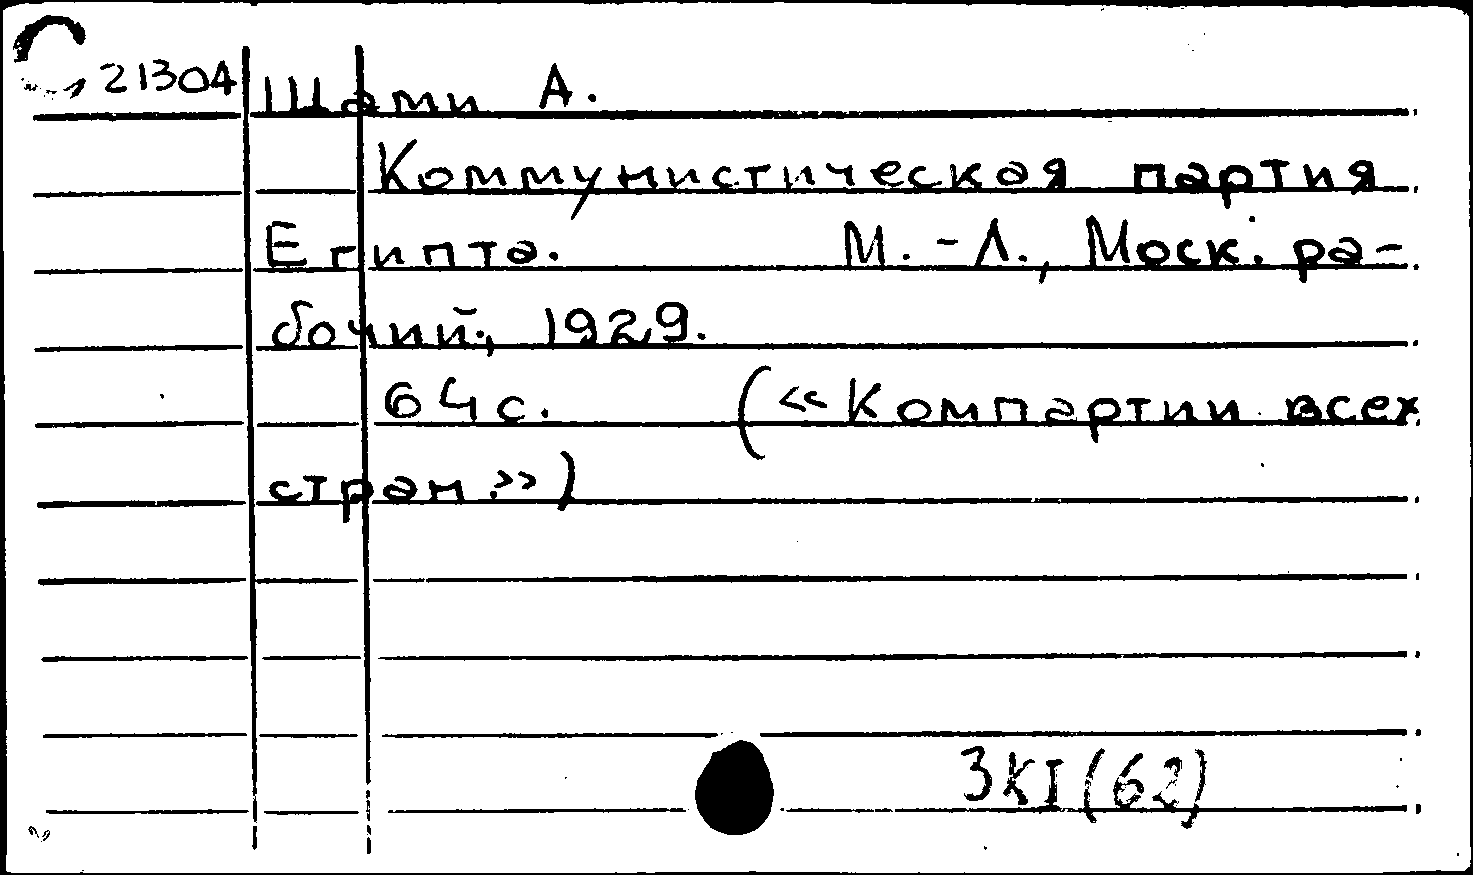 21304 Шами А.
Коммунистическая партия
Египта. М.-Л., Моск. ра-
бочий, 1929.
64 с. («Компартии всех
стран»)
3КI(62)